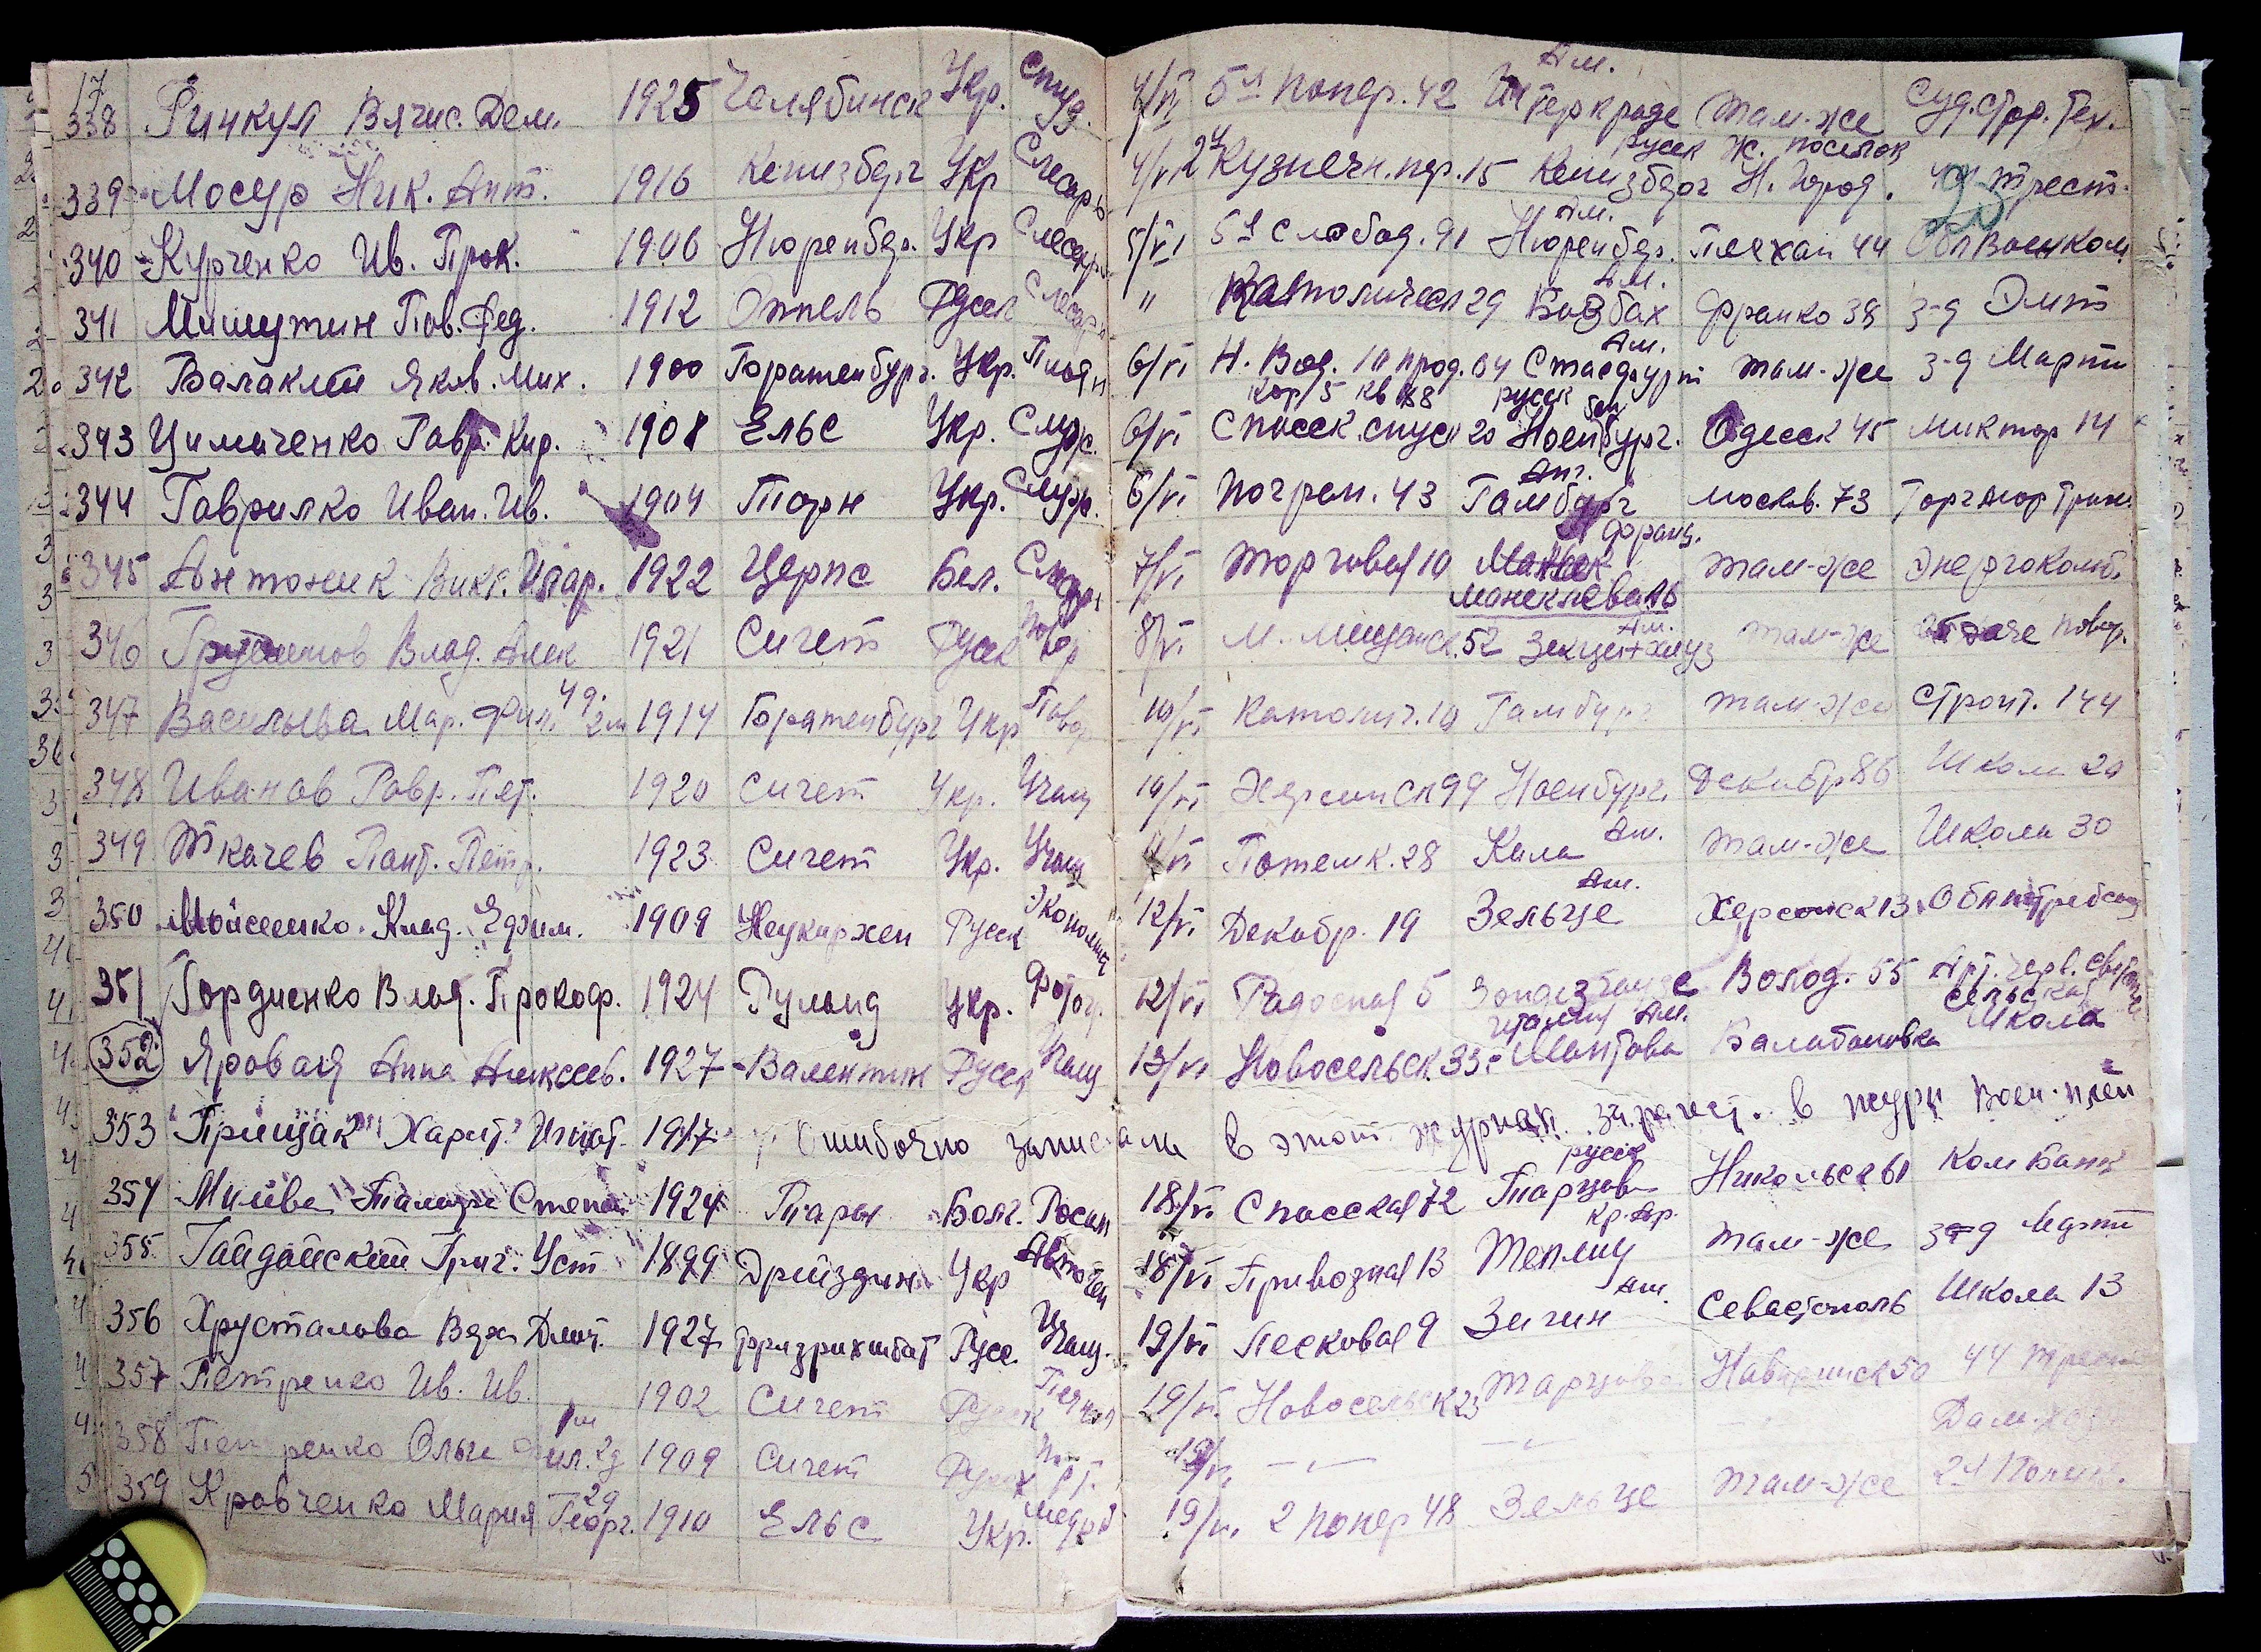 17
338 Ринкул Вячис. Дем. 1925 Челябинск Укр. Студ. 4/VI 5я попер. 42 Ам. Интеркраде там-же Суд. стр. тех.
339 Мосур Ник. Ант. 1916 Кенизберг Укр Слесарь 4/VI 2я Кузнечн. пер. 15 Кенизберг русск Н. город. Ж. поселок трест.
340 Курченко Ив. Прок. 1906 Нюренбер. Укр Слесарь 5/VI 5я Слобод. 91 Нюренбер. Ам. Плехан 44 Облвоенком
341 Мишутин Пав. Фед. 1912 Оппель Русск Слесарь " Католическ 29 Ам. Франко 38 з-д
342 Балаклей Яков. Мих. 1900 Горатенбург. Укр. Плотн 6/VI Н. Вод. 10 прод. 04 Кор/5 кв 88 Стасфурт Ам. там-же з-д Марти
343 Цимаченко Гавр. Кир. 1908 Ельс Укр. Служ. 6/VI Спасск. спуск 20 русск Ноенбург. Одесск 45 Миктор 14
344 Гаврилко Иван. Ив. 1904 Торн Укр. Служ. 6/VI Погран. 43 Гамбург Анг. Москов. 73 Торг мор
345 Антоник Викт. Илар. 1922 Церпс Бел. Слесарь 7/VI Торговая 10 Франц. там-же Энергокомб.
346 Влад. Алек 1921 Сигет Русск 8/VI М. Мищанск. 52 Ам. там-же повар.
347 Васильева Мар. Фил. 4 д. 1914 Горатенбург Укр Повар 10/VI Католич. 10 Гамбург там-же Строит. 144
348 Иванов Гавр. Пет. 1920 Сигет Укр. Учащ 10/VI Херсонск 99 Ноенбург. Декабр 86 Школа 20
349 Ткачев Пант. Петр. 1923 Сигет Укр. Учащ VI Потемк. 28 Кила Ам. там-же Школа 30
350 Мойсеенко Клад. Ефим. 1909 Неукирхен Русск Экономист 12/VI Декабр. 19 Зельце Ам. Херсонск 13
351 Гордиенко Влад. Прокоф. 1924 Руланд Укр. Фотог. 12/VI Радосная 5 Волод. 55 Арт. черв.
352 Яровая Анна Алексеев. 1927 Валентин Русск Учащ 13/VI Новосельск. 33 Италия Ам. Мантова Балабановка сельская Школа
353 Прищак Харит. Игнат. 1917 Ошибочно записали в этот журнал. зарегист. в журн воен. плен
354 Милева Тамара Степан 1924 Тары Болг. 18/VI Спасская 72 русск Тарцов Никольск 61 Ком Банк
355 Гайдайский Григ. Уст 1899 Дрейзден Укр 18/VI Привозная 13 Теплиц Кр. Ар. там-же з-д Марти
356 Хрусталева Дмит. 1927 Русс. Учащ. 19/VI Песковая 9 Зиген Ам. Севастополь Школа 13
357 Петренко Ив. Ив. 1902 Сигет Русск 19/VI Новосельск 23 Тарцов Наваринск 50 44 трест
358 Петренко Ольга 1909 Сигет Русск 19/VI — " — Дом. хоз
359 Кравченко Мария Георг. 1910 Ельс Укр. 19/VI 2 попер 48 Зельце там-же 24 Полик.